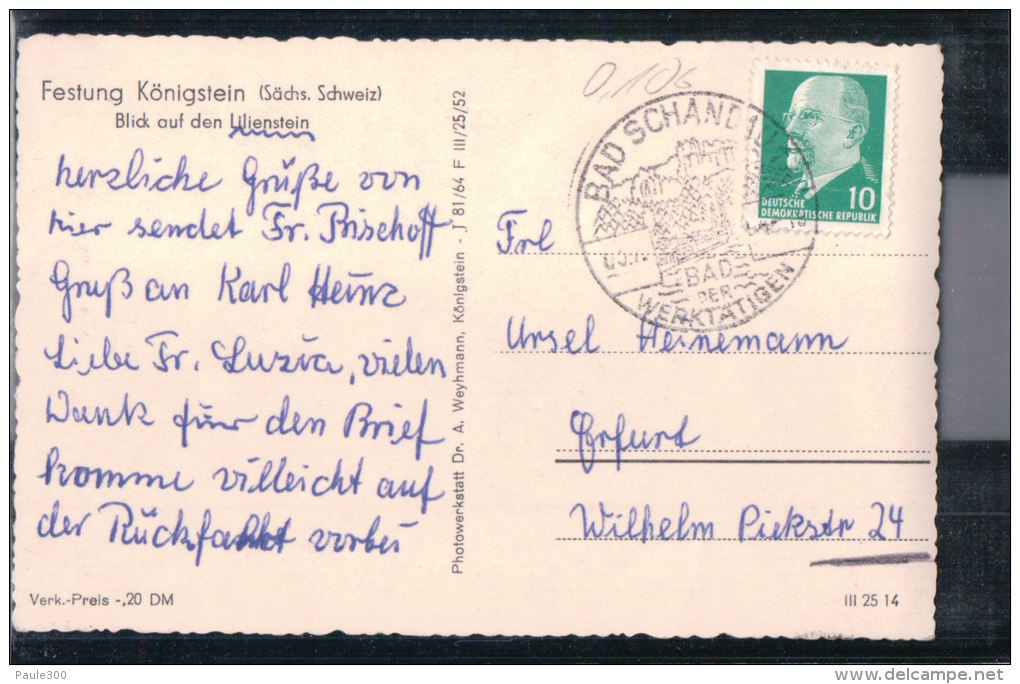 Festung Königstein (Sächs. Schweiz)
Blick auf den Lilienstein
herzliche Grüße von
hier sendet Fr. Bischoff
Gruß an Karl Heinz
Liebe Fr. Luzia, vielen
Dank für den Brief
komme villeicht auf
der Rückfahrt vorbei
Verk.-Preis -,20 DM
Photowerkstatt Dr. A. Weyhmann, Königstein - J 81/64 F III/25/52
BAD SCHANDAU
BAD
DER
WERKTÄTIGEN
10
DEUTSCHE
DEMOKRATISCHE REPUBLIK
Frl
Ursel Heinemann
Erfurt
Wilhelm Pieckstr 24
III 25 14
Paule300
delcampe.net